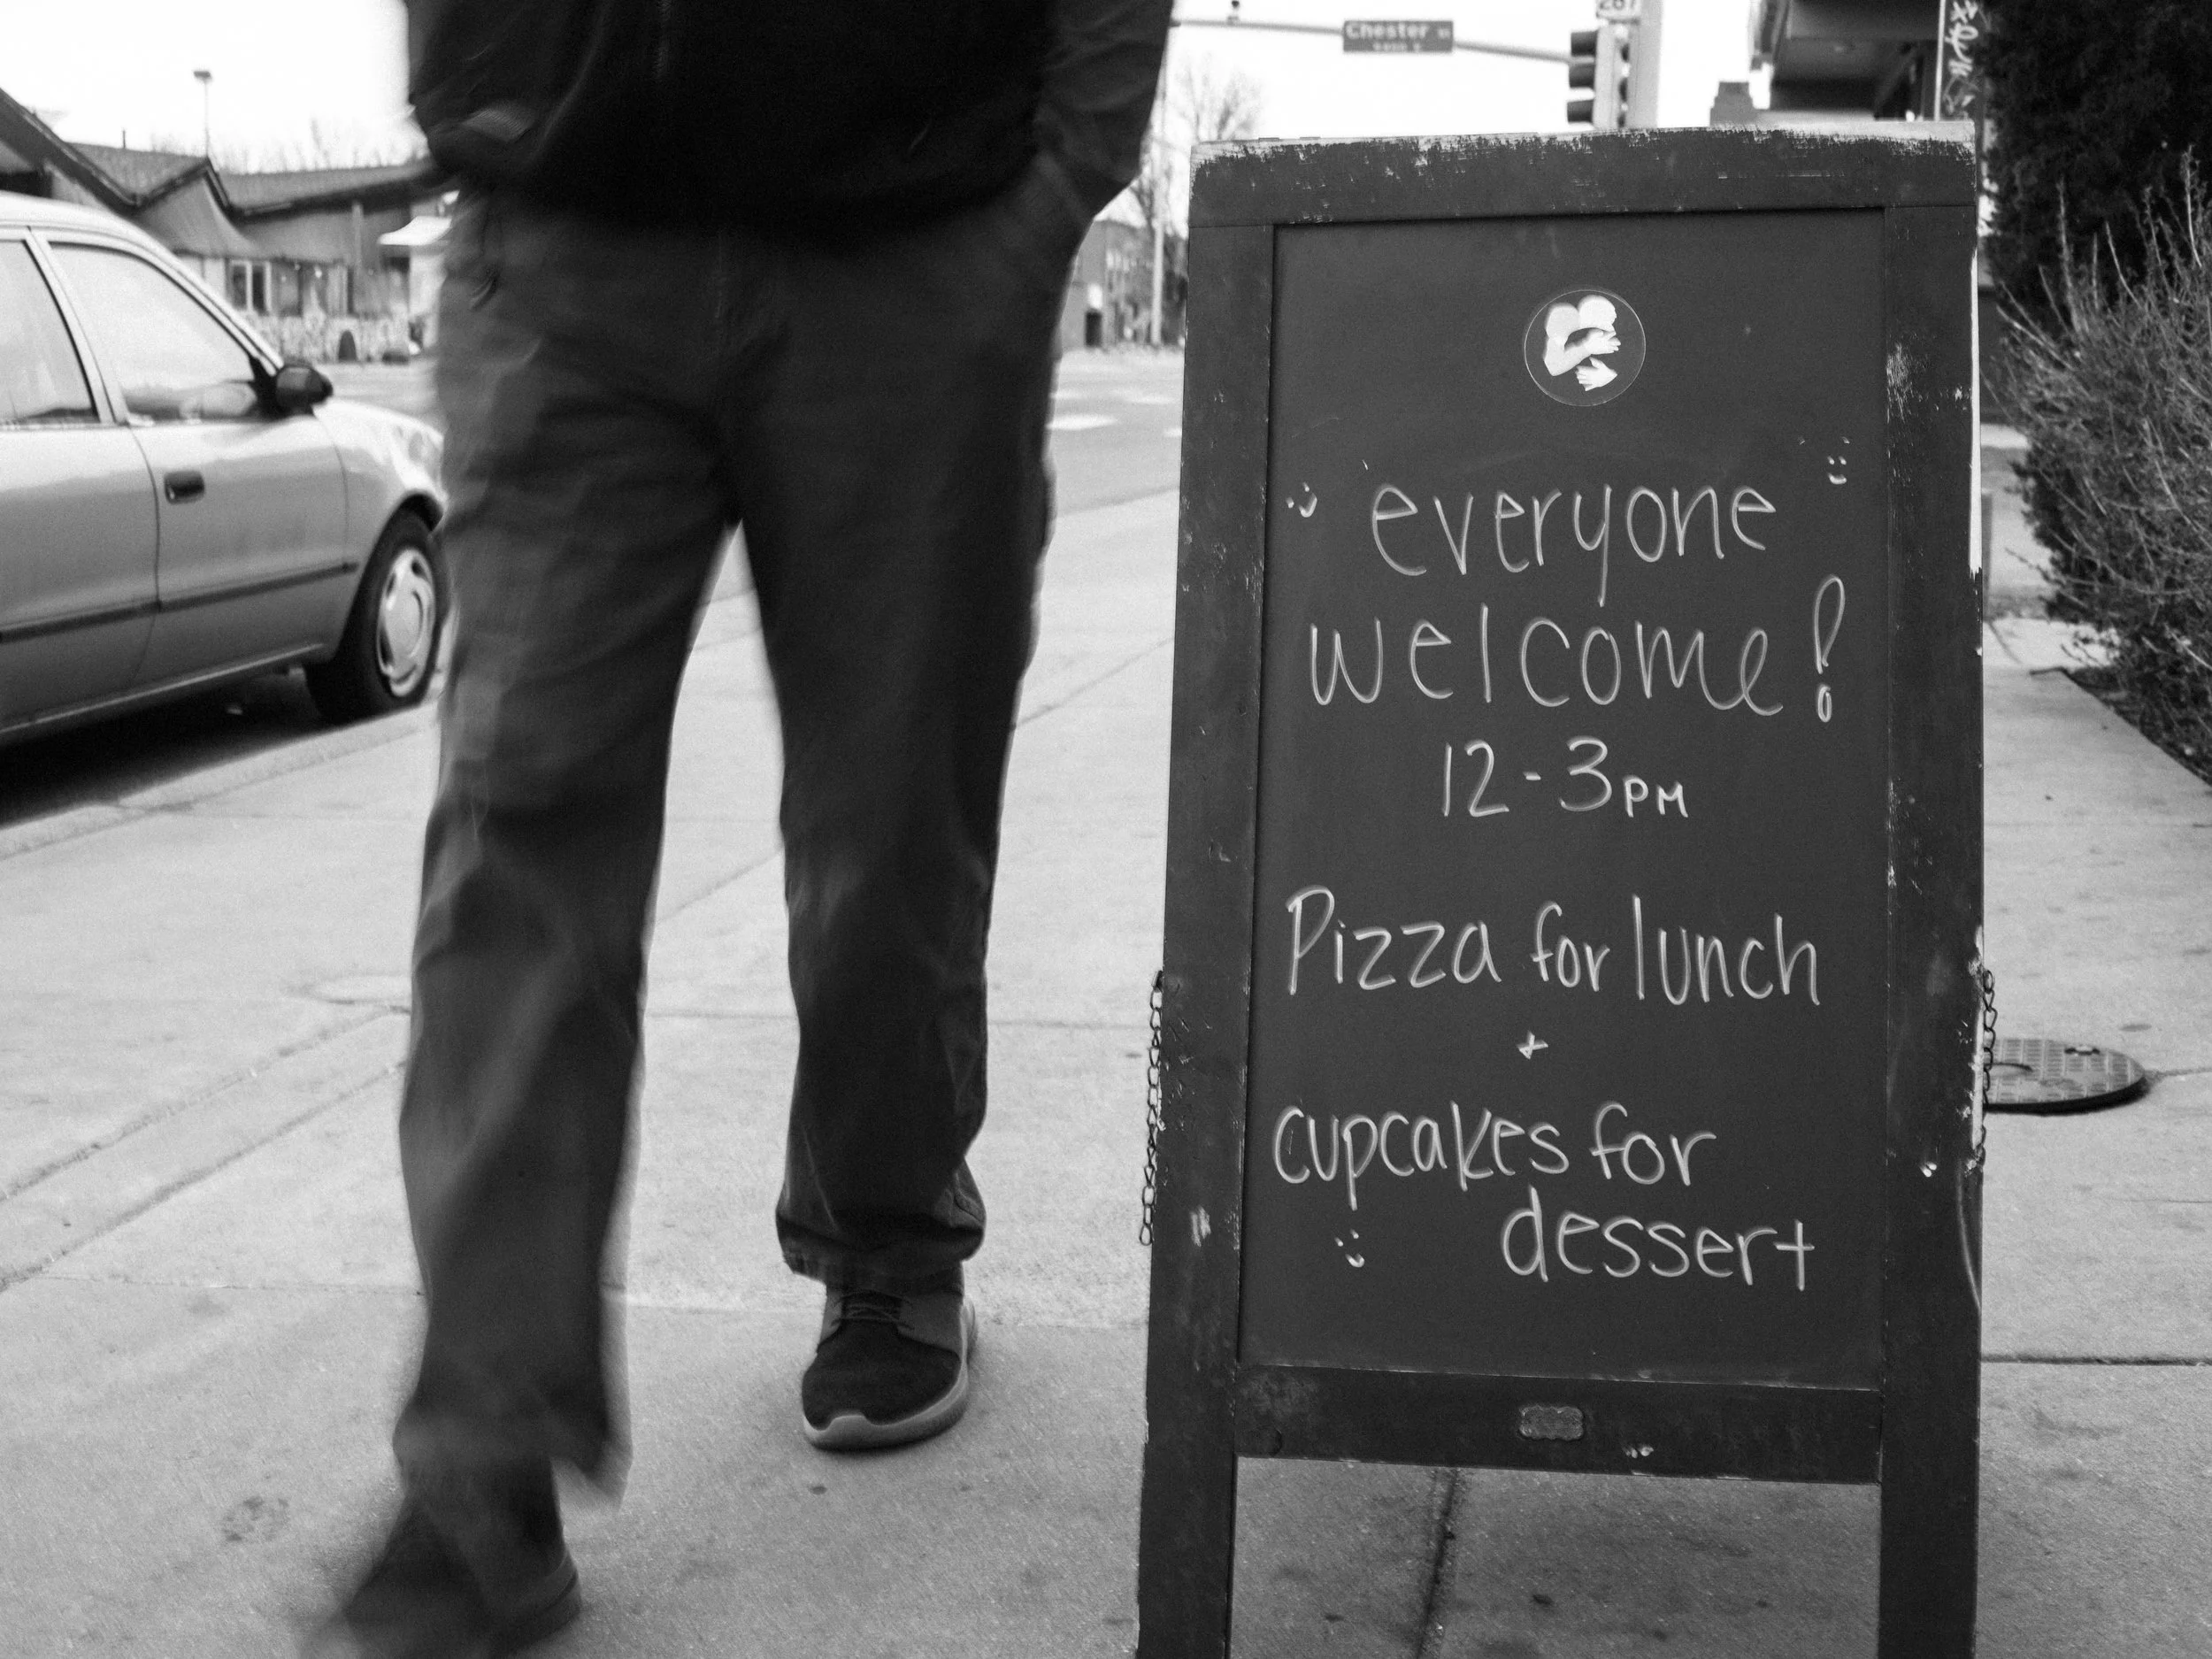 Chester St
287
everyone
welcome!
12-3PM
Pizza for lunch
+
cupcakes for
dessert